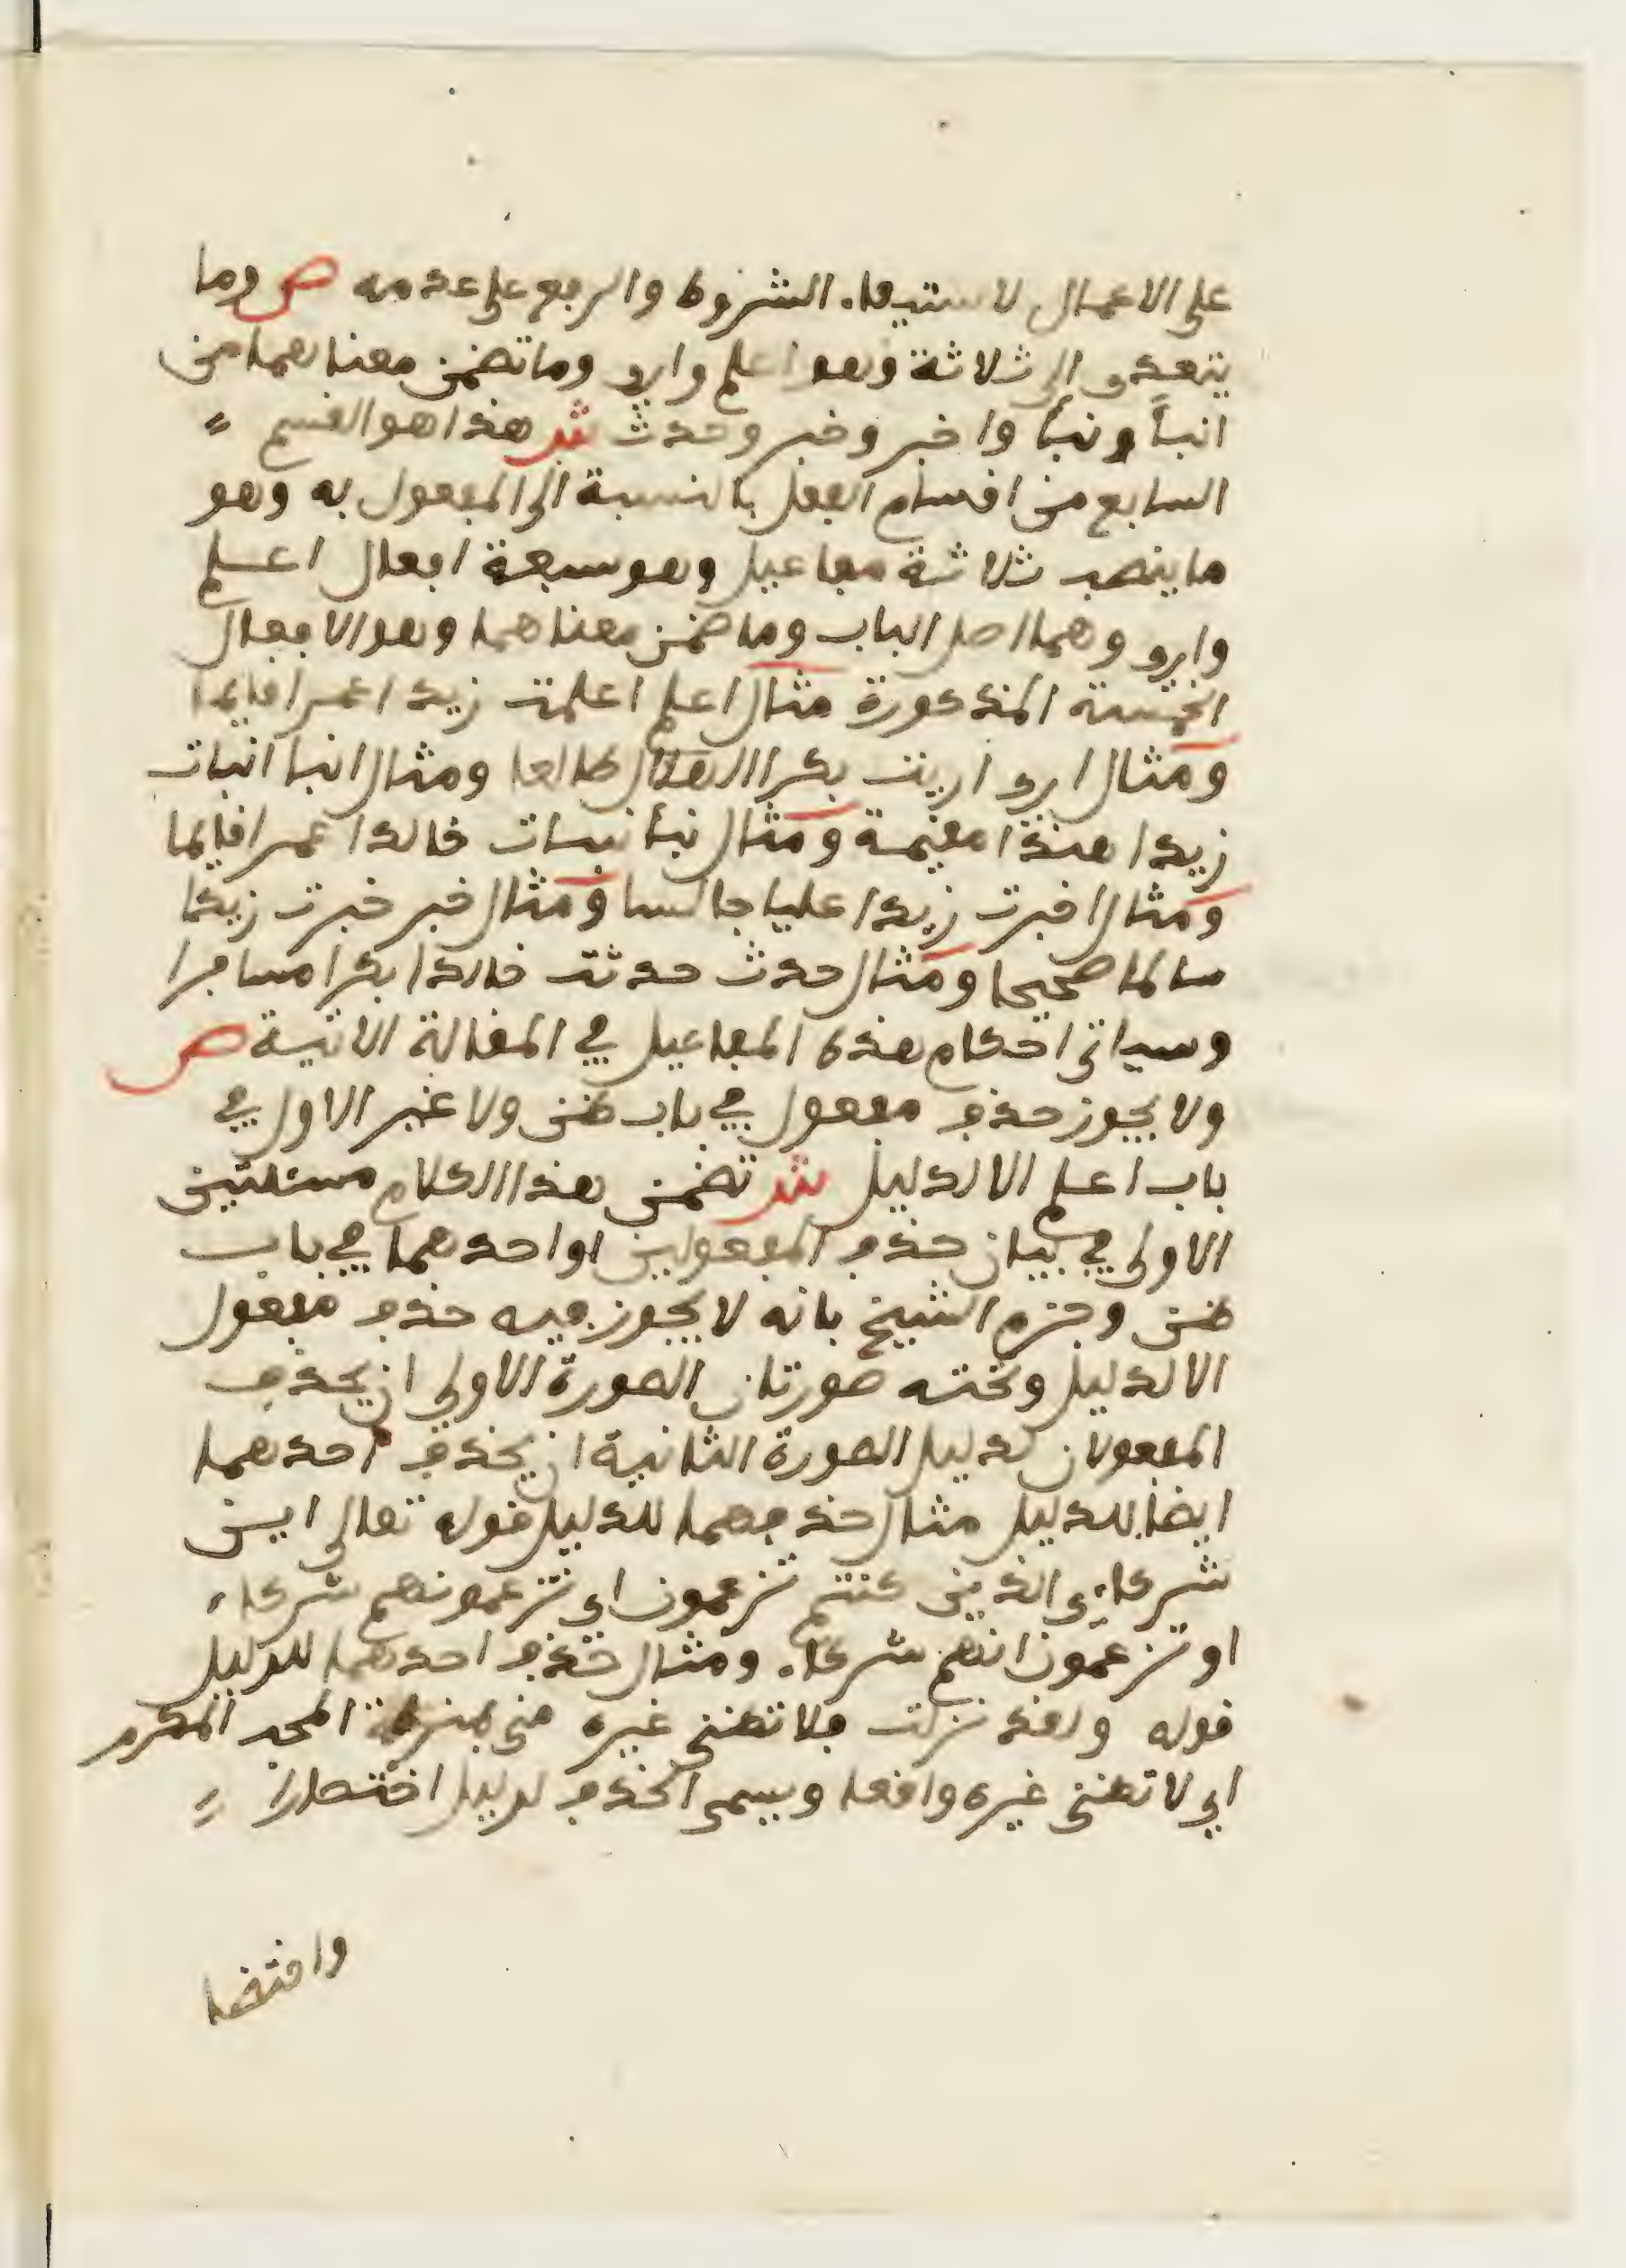 على الاعمال لاستيفاء الشروط والرفع على عدمه ص وما
يتعدى الى ثلاثة وهو اعلم وارى وما تضمن معناهما من
انبأ ونبأ واخبر وخبر وحدث ش هذا هو القسم
السابع من اقسام الفعل بالنسبة الى المفعول به وهو
ما ينصب ثلاثة مفاعيل وهو سبعة افعال اعلم
وارى وهما اصل الباب وما ضمن معناهما وهو الافعال
الخمسة المذكورة مثال اعلم اعلمت زيدا عمرا قايما
ومثال ارى اريت بكرا الهلال طالعا ومثال انبا انبات
زيدا هندا مقيمة ومثال نبأ نبات خالدا عمرا قايما
ومثال اخبرت زيدا عليا جالسا ومثال خبر خبرت زيدا
سالما صحيحا ومثال حدث حدثت خالدا بكرا مسافرا
وسياتى احكام هذه المفاعيل في المقالة الاتية ص
ولا يجوز حذف مفعول في باب ظن ولا غير الاول في
باب اعلم الا لدليل ش تضمن هذا الكلام مسئلتين
الاولى في بيان حذف المفعولين او احدهما في باب
ظن وجزم الشيخ بانه لا يجوز فيه حذف مفعول
الا لدليل وتحته صورتان الصورة الاولى ان يحذف
المفعولان لدليل الصورة الثانية ان يحذف احدهما
ايضا لدليل مثال حذفهما للدليل قوله تعالى اين
شركاءى الذين كنتم تزعمون اي تزعمونهم شركاء
او تزعمون انهم شركاء ومثال حذف احدهما للدليل
قوله ولقد نزلت فلا تظنى غيره منى بمنزلة المحب المكرم
اي لا تظنى غيره واقعا ويسمى الحذف لدليل اختصارا
واقتصا